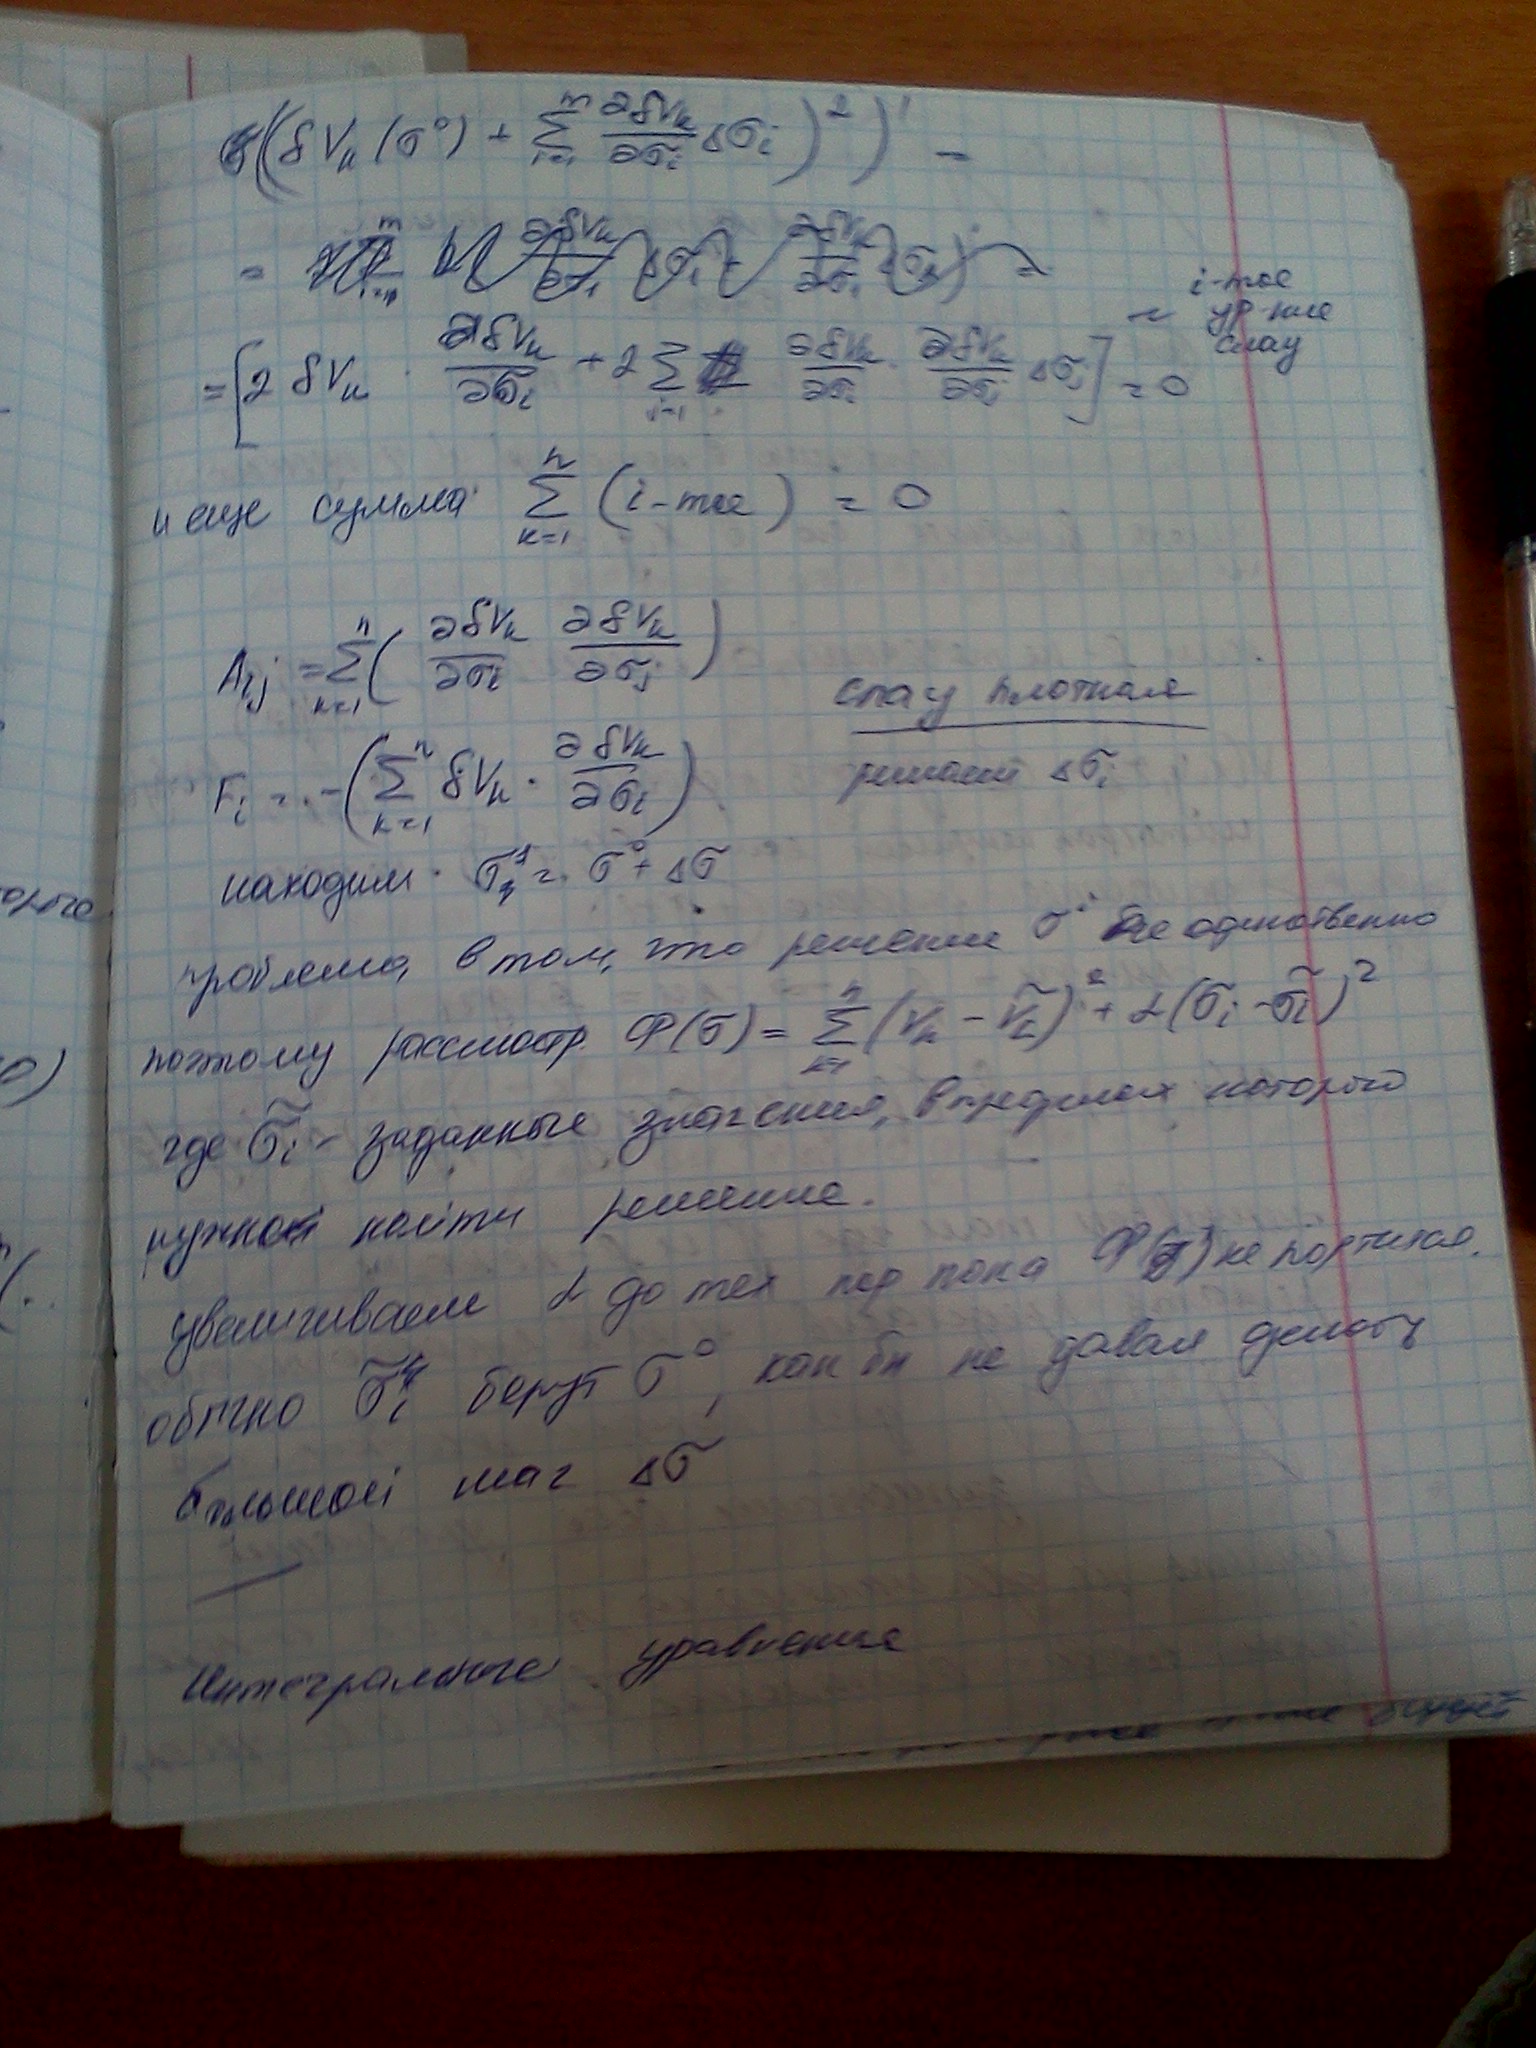 ((δVₖ(σ⁰) + Σᵢ₌₁ᵐ ∂δVₖ/∂σᵢ Δσᵢ)²)' =
= [2 δVₖ · ∂δVₖ/∂σᵢ + 2 Σⱼ₌₁ ∂δVₖ/∂σᵢ · ∂δVₖ/∂σⱼ Δσⱼ] = 0 ~ i-тое ур-ние слау
и еще сумма Σₖ₌₁ⁿ (i-тое) = 0
Aᵢⱼ = Σₖ₌₁ⁿ (∂δVₖ/∂σᵢ ∂δVₖ/∂σⱼ)
слау плотная
Fᵢ = -(Σₖ₌₁ⁿ δVₖ · ∂δVₖ/∂σᵢ)
решаем Δσᵢ
находим σ¹ = σ⁰ + Δσ
проблема, в том, что решение σ не единственно
поэтому рассмотр. Ф(σ) = Σₖ₌₁ⁿ (Vₖ - Ṽₖ)² + α(σᵢ - σ̃ᵢ)²
где σ̃ᵢ - заданные значения, в пределах которого
нужной найти решение.
увеличиваем α до тех пор пока Ф(σ¹) не портится.
обычно σ̃ᵢ берут σ⁰, как бы не давая делать
большой шаг Δσ
Интегральные уравнения